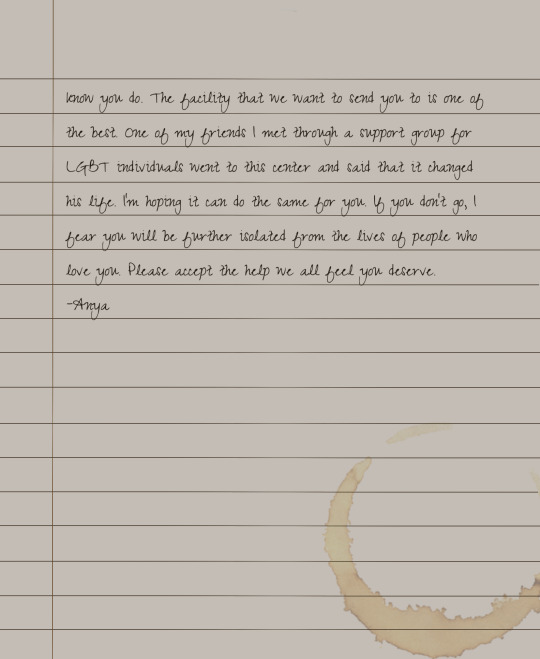 know you do. The facility that we want to send you to is one of
the best. One of my friends I met through a support group for
LGBT individuals went to this center and said that it changed
his life. I'm hoping it can do the same for you. If you don't go, I
fear you will be further isolated from the lives of people who
love you. Please accept the help we all feel you deserve.
-Anya